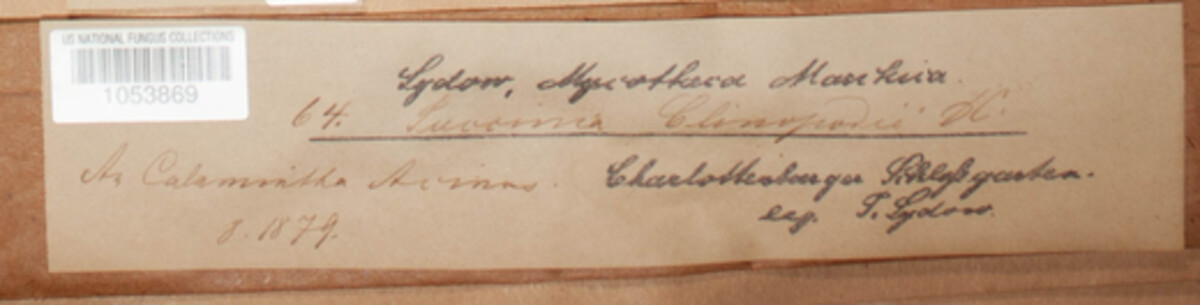 US NATIONAL FUNGUS COLLECTIONS
1053869
Sydow, Mycotheca Marchica.
64. Puccinia Clinopodii DC.
An Calamintha Acinos.
8. 1879.
Charlottenburger Schloßgarten.
leg. P. Sydow.